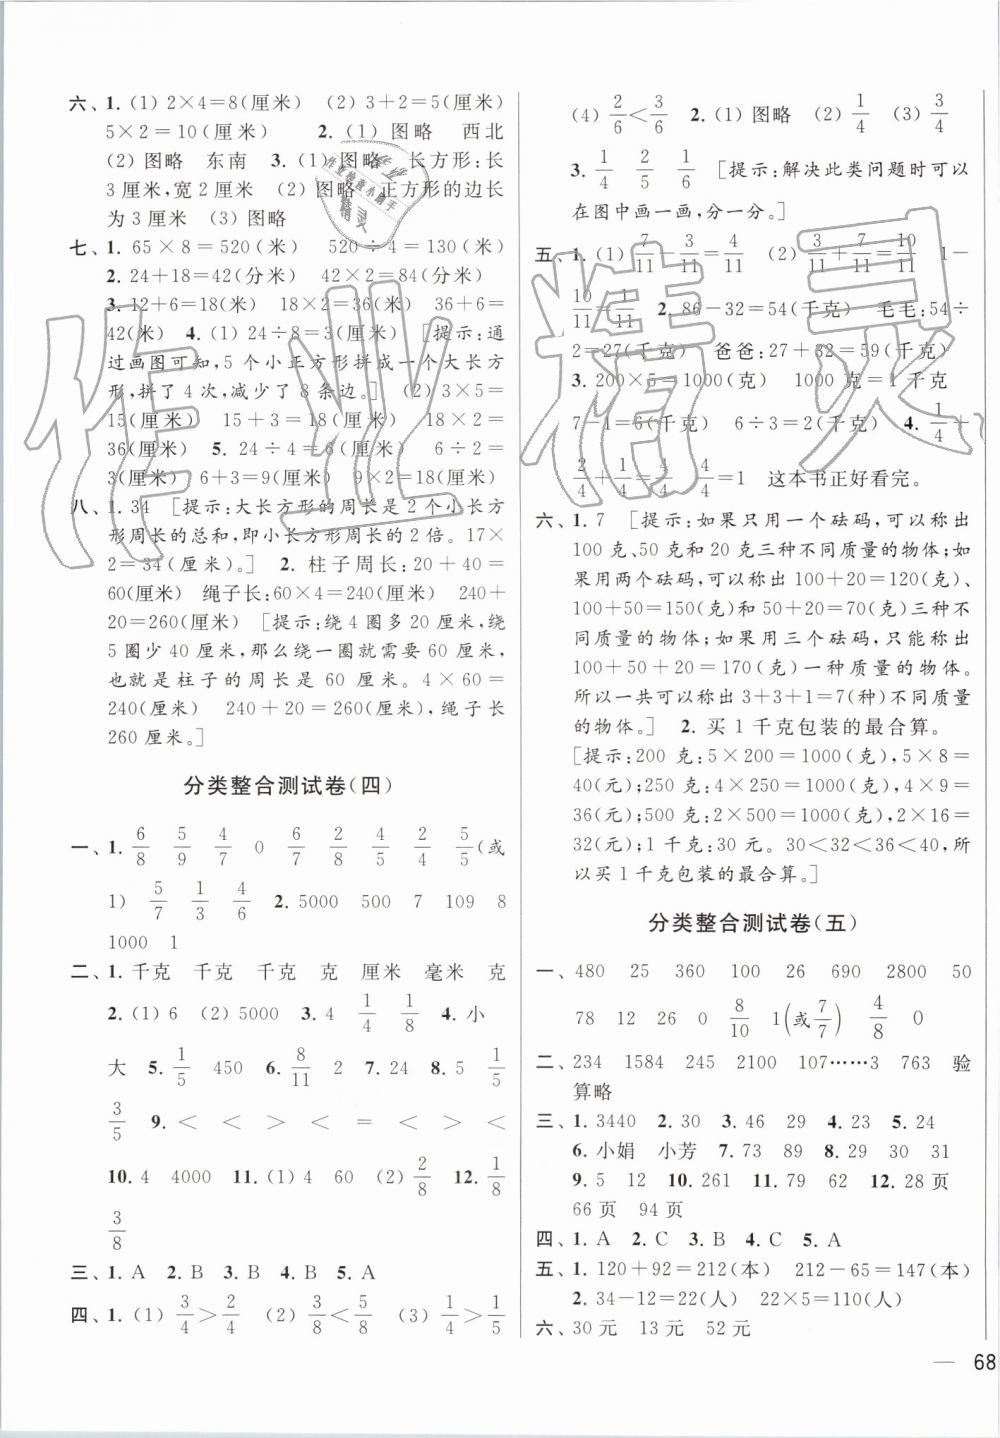 六、1. (1) 2×4=8(厘米) (2) 3+2=5(厘米)
5×2=10(厘米) 2. (1) 图略 西北
(2) 图略 东南 3. (1) 图略 长方形:长
3厘米,宽2厘米 (2) 图略 正方形的边长
为3厘米 (3) 图略
七、1. 65×8=520(米) 520÷4=130(米)
2. 24+18=42(分米) 42×2=84(分米)
3. 12+6=18(米) 18×2=36(米) 36+6=
42(米) 4. (1) 24÷8=3(厘米) [提示:通
过画图可知,5个小正方形拼成一个大长方
形,拼了4次,减少了8条边。] (2) 3×5=
15(厘米) 15+3=18(厘米) 18×2=
36(厘米) 5. 24÷4=6(厘米) 6÷2=
3(厘米) 6+3=9(厘米) 9×2=18(厘米)
八、1. 34 [提示:大长方形的周长是2个小长方
形周长的总和,即小长方形周长的2倍。17×
2=34(厘米)。] 2. 柱子周长:20+40=
60(厘米) 绳子长:60×4=240(厘米) 240+
20=260(厘米) [提示:绕4圈多20厘米,绕
5圈少40厘米,那么绕一圈就需要60厘米,
也就是柱子的周长是60厘米。4×60=
240(厘米) 240+20=260(厘米),绳子长
260厘米。]
分类整合测试卷(四)
一、1. 6/8 5/9 4/7 0 6/7 2/8 4/5 2/4 5/5(或
1) 5/7 1/3 4/6 2. 5000 500 7 109 8
1000 1
二、1. 千克 千克 千克 克 厘米 毫米 克
2. (1) 6 (2) 5000 3. 4 1/4 1/8 4. 小
大 5. 1/5 450 6. 8/11 2 7. 24 8. 5 1/5
3/5 9. < < > < = < > <
10. 4 4000 11. (1) 4 60 (2) 2/8 12. 1/8
3/8
三、1. A 2. B 3. B 4. B 5. A
四、1. (1) 3/4>2/4 (2) 3/8<5/8 (3) 1/4>1/5
(4) 2/6<3/6 2. (1) 图略 (2) 1/4 (3) 3/4
3. 1/4 2/5 1/6 [提示:解决此类问题时可以
在图中画一画,分一分。]
五、1. (1) 7/11-3/11=4/11 (2) 3/11+7/11=10/11 1-
10/11=1/11 2. 86-32=54(千克) 毛毛:54÷
2=27(千克) 爸爸:27+32=59(千克)
3. 200×5=1000(克) 1000克=1千克
7-1=6(千克) 6÷3=2(千克) 4. 1/4+
2/4+1/4=4/4=1 这本书正好看完。
六、1. 7 [提示:如果只用一个砝码,可以称出
100克、50克和20克三种不同质量的物体;如
果用两个砝码,可以称出100+20=120(克)、
100+50=150(克)和50+20=70(克)三种不
同质量的物体;如果用三个砝码,只能称出
100+50+20=170(克)一种质量的物体。
所以一共可以称出3+3+1=7(种)不同质量
的物体。] 2. 买1千克包装的最合算。
[提示:200克:5×200=1000(克),5×8=
40(元);250克:4×250=1000(克),4×9=
36(元);500克:2×500=1000(克),2×16=
32(元);1千克:30元。30<32<36<40,所
以买1千克包装的最合算。]
分类整合测试卷(五)
一、480 25 360 100 26 690 2800 50
78 12 26 0 8/10 1(或7/7) 4/8 0
二、234 1584 245 2100 107……3 763 验
算略
三、1. 3440 2. 30 3. 46 29 4. 23 5. 24
6. 小娟 小芳 7. 73 89 8. 29 30 31
9. 5 12 10. 261 11. 79 62 12. 28页
66页 94页
四、1. A 2. C 3. B 4. C 5. A
五、1. 120+92=212(本) 212-65=147(本)
2. 34-12=22(人) 22×5=110(人)
六、30元 13元 52元
— 68
作业精灵